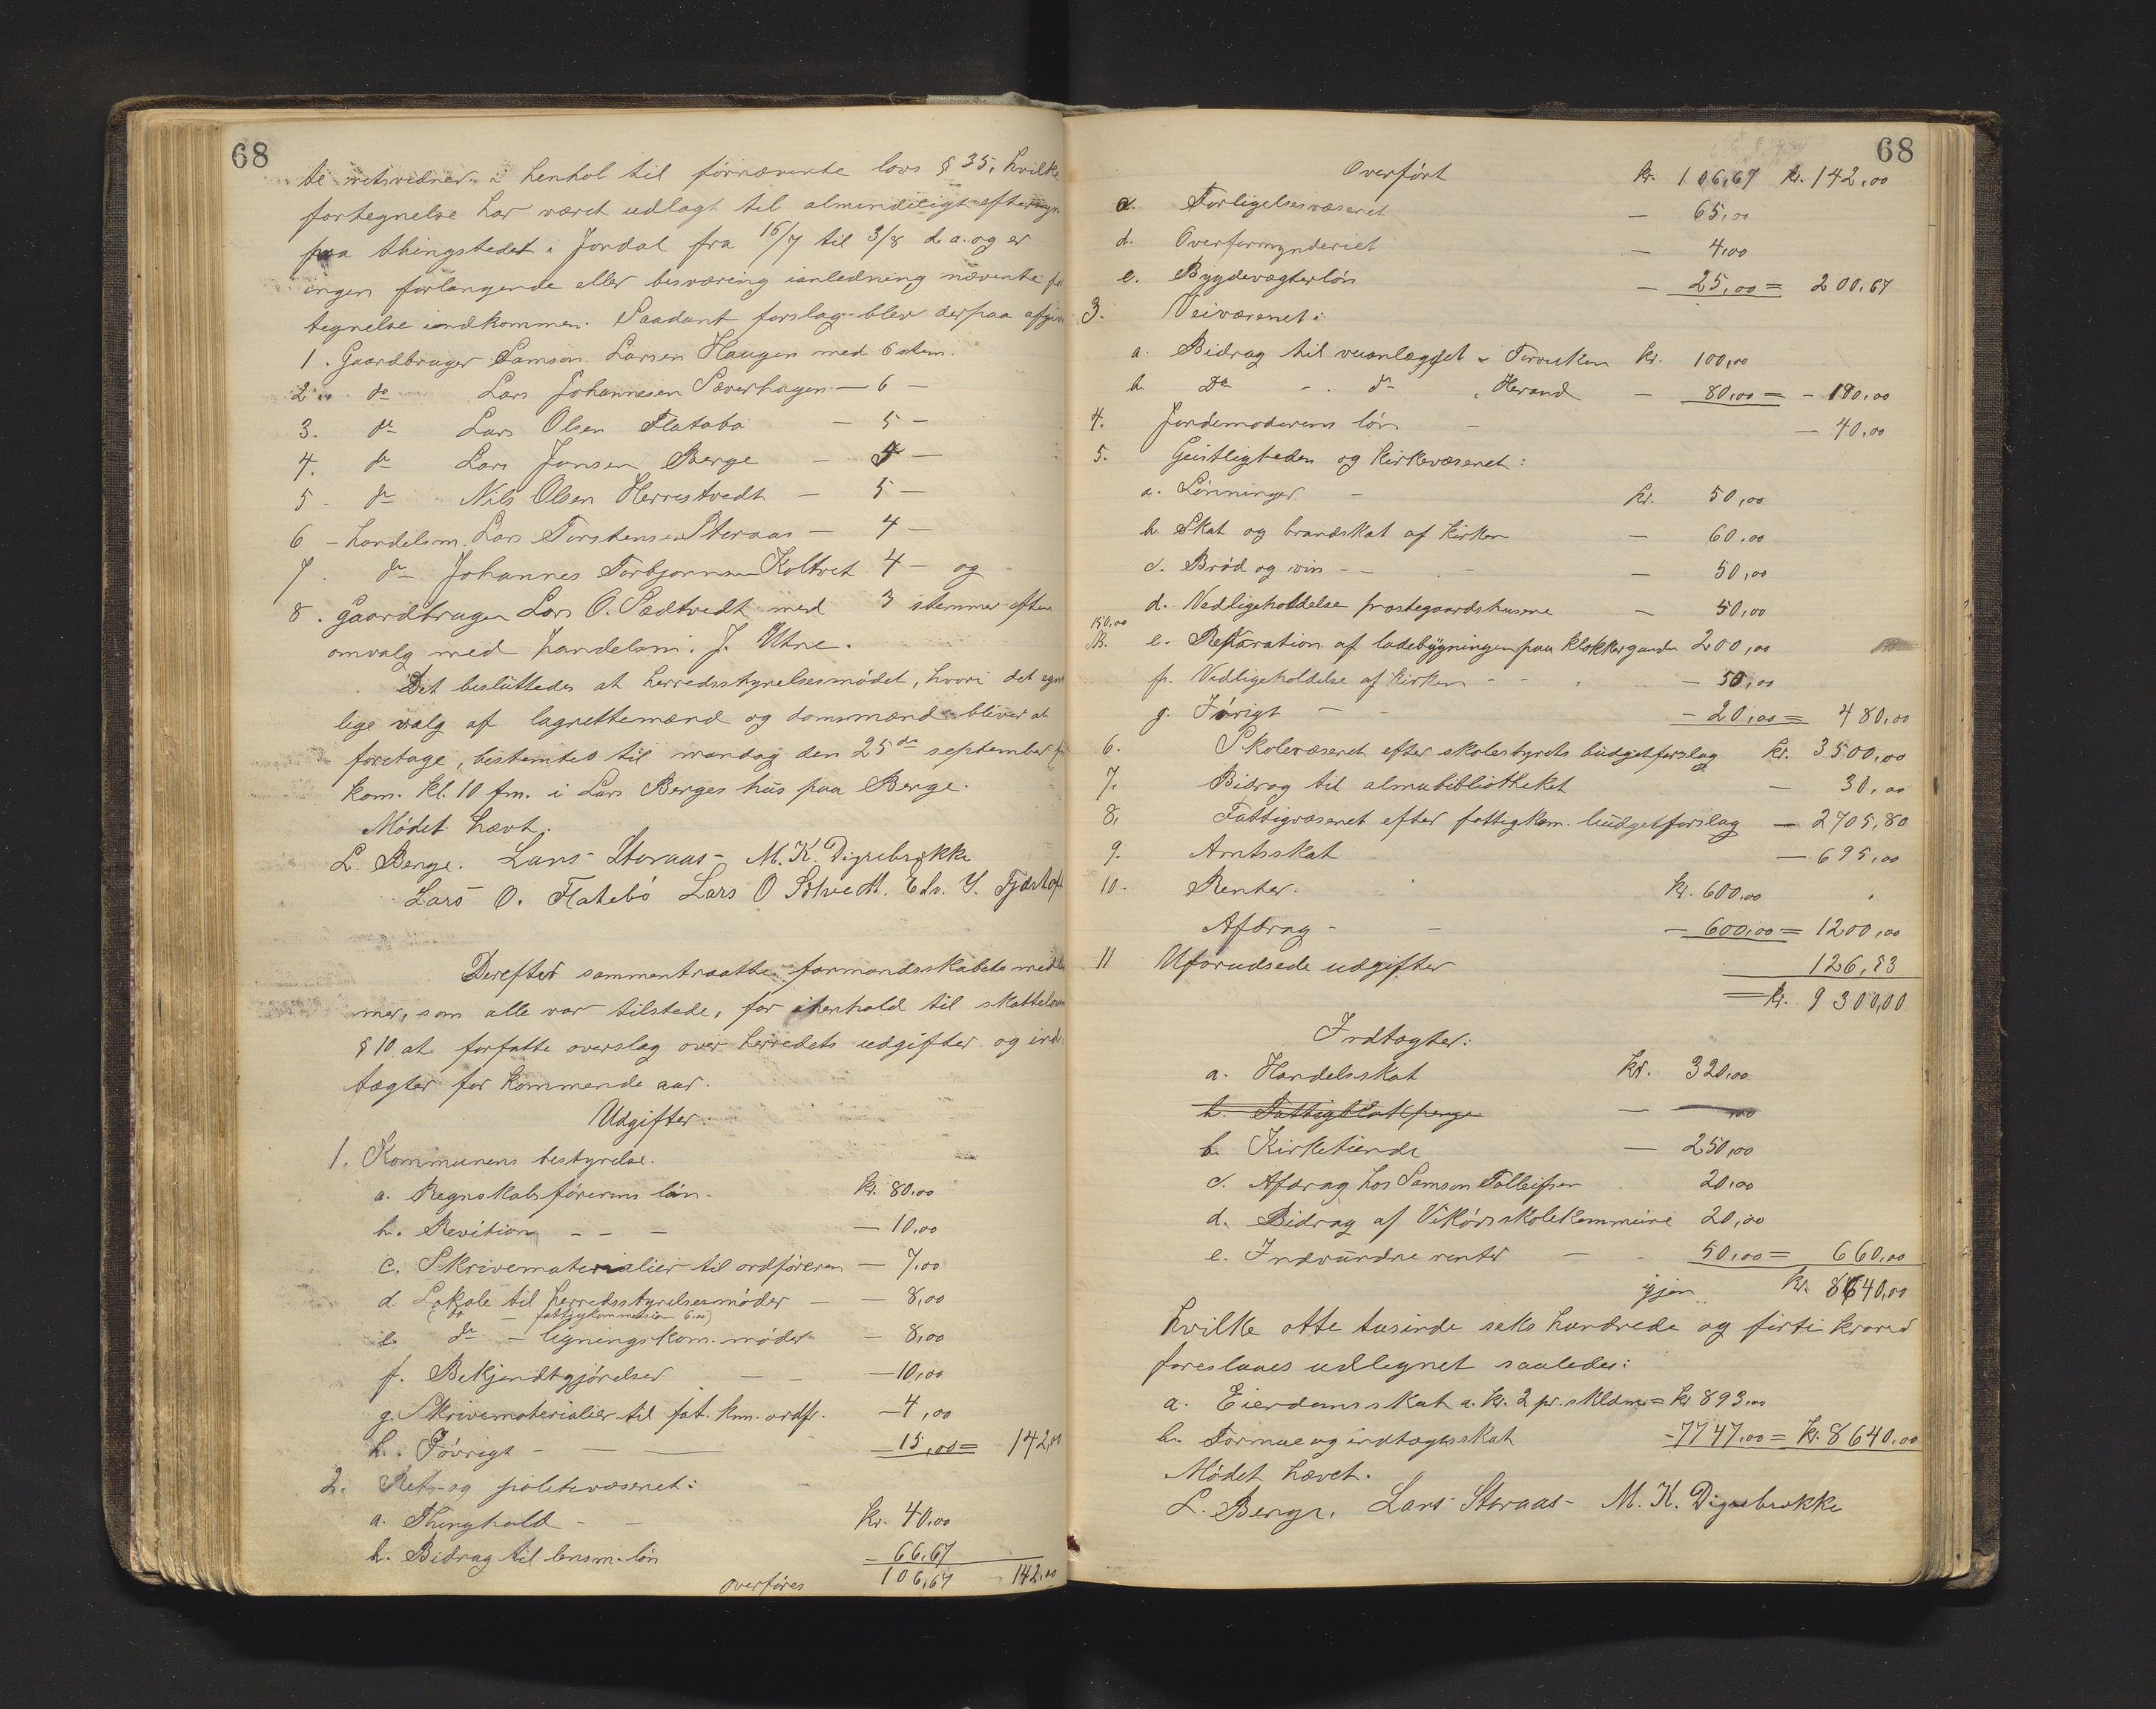 68
til retsvidner i henhol til fornævnte lovs § 35, hvilke
fortegnelse har været udlagt til almindeligt eftersyn
paa thingstedet i Jondal fra 16/7 til 3/8 d. a. og er
ingen forlangende eller besværing ianledning nævnte for
tegnelse indkommen. Saadant forslag blev derpaa afgivet
1. Gaardbruger Samson Larsen Haugen med 6 stem.
2. do Lars Johannesen Sæverhagen — 6 —
3. do Lars Olsen Flatabø — 5 —
4. do Lars Jonsen Berge — 5 —
5 - do Nils Olsen Herrestvedt — 5 —
6 - handelsm. Lars Torstensen Storaas — 4 —
7. do Johannes Torbjornsen Koltvet 4 — og
8. gaardbruger Lars O. Sædtvedt med 3 stemmer efter
omvalg med handelsm. J. Utne.
Det besluttedes at herredsstyrelsesmødet, hvori det egent
lige valg af lagrettemænd og domsmænd bliver at
foretage, bestemtes til mandag den 25de september for
kom. kl. 10 fm. i Lars Berges hus paa Berge.
Mødet hævt.
L. Berge. Lars Storaas - M. K. Digrebrekke
Lars O. Flatebø Lars O Sætvedt. Edv. Y.
Derefter sammentraatte formandsskabets medlem
mer, som alle var tilstede, for ihenhold til skatteloven
§ 10 at forfatte overslag over herredets udgifter og ind-
tægter for kommende aar.
Udgifter:
1. Kommunens bestyrelse.
a. Regnskabsførerens løn. kr. 80.00
b. Revition — — — — 10,00
c. Skrivematerialier til ordføreren — 7.00
d. Lokale til herredsstyrelsesmøder — — 8,00
(do — fattigkommission 6.00)
e. do — ligningskom. møder — 8,00
f. Bekjendtgjørelser — — — 10,00
g. Skrivematerialier til fat. kom. ordf. — 4,00
h. Iøvrigt — — — — 15,00 = 142,00
2. Rets- og politivæsenet:
a. Thinghold — — kr. 40.00
b. Bidrag til lensm. løn — 66.67
overføres 106,67 - 142.00
68
Overført kr. 106,67 kr. 142,00
c. Forligelsesvæsenet — 65,00
d. Overformynderiet — 4,00
e. Bygdevægterløn — 25,00 = 200,67
3. Veivæsenet:
a. Bidrag til veianlægget i Torvuken kr. 100,00
b. Do — do i Herand — 80,00 = - 180,00
4. Jordemoderens løn — — 40,00
5. Geistligheden og kirkevæsenet:
a. Lønninger — kr. 50,00
b. Skat og brandskat af kirken — 60,00
c. Brød og vin — — — 50,00
d. Vedligeholdelse præstegaardshusene — 50,00
150,00
B. e. Reparation af ladebygningen paa klokkergaarden 200,00
f. Vedligeholdelse af kirken — — 50,00
g. Iørigt — — 20,00 = 480,00
6. Skolevæsenet efter skolestyrets budgetforslag kr. 3500,00
7. Bidrag til almubibliotheket — 30,00
8. Fattigvæsenet efter fattigkom. budgetforslag — 2705,80
9. Amtsskat — 695,00
10. Renter. kr. 600,00
Afdrag — — — 600,00 = 1200,00
11 Uforudsede udgifter 126,53
kr. 9300,00
Indtægter:
a. Handelsskat kr. 320,00
b. Kirketiende — 250,00
c. Afdrag hos Samson Tolleifsen 20,00
d. Bidrag af Vikørs skolekommune 20,00
e. Indvundne renter — 50,00 = 660,00
igjen kr. 8640,00
hvilke otte tusinde seks hundrede og firti kroner
foreslaaes udlignet saaledes:
a. Eierdomsskat a. kr. 2 pr. skldm = kr 893,00
b. Formue og indtægtsskat - 7747,00 = kr. 8640,00
Mødet hævet.
L. Berge. Lars Storaas - M. K. Digrebrekke